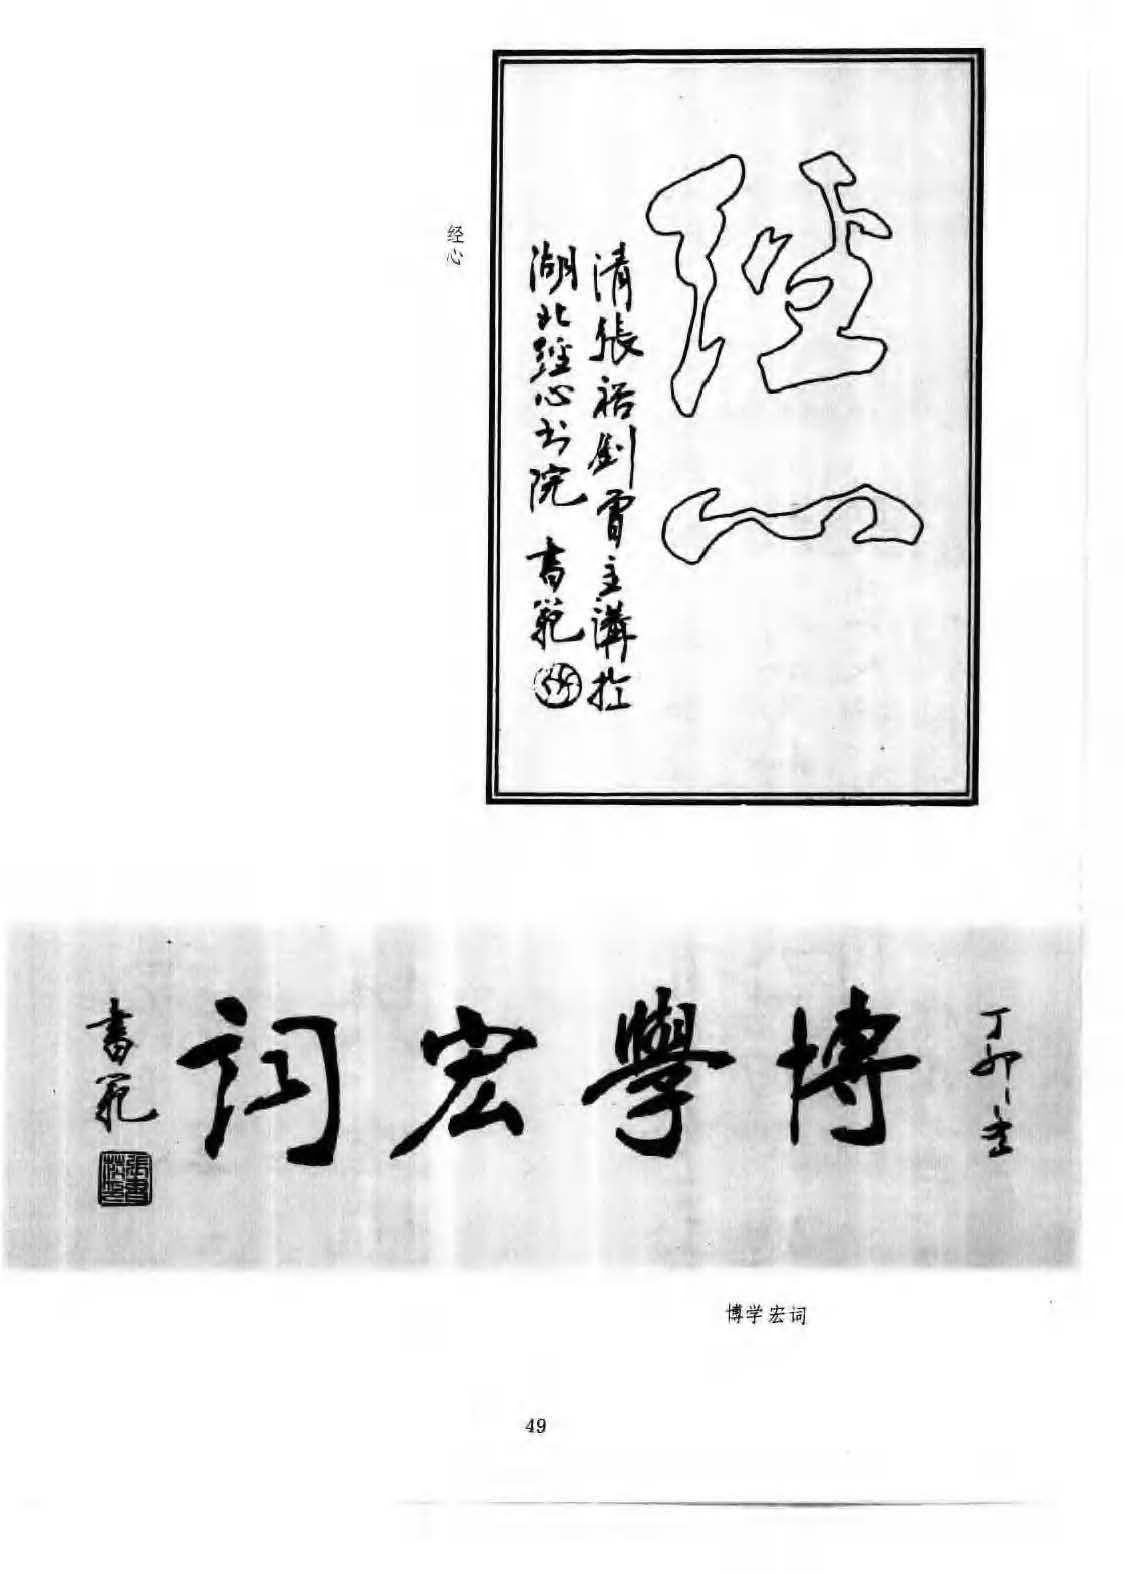 經心
清張裕釗曾主講於
湖北經心书院 書範
经心
丁卯年
博學宏詞
書範
張書範印
博学宏词
49